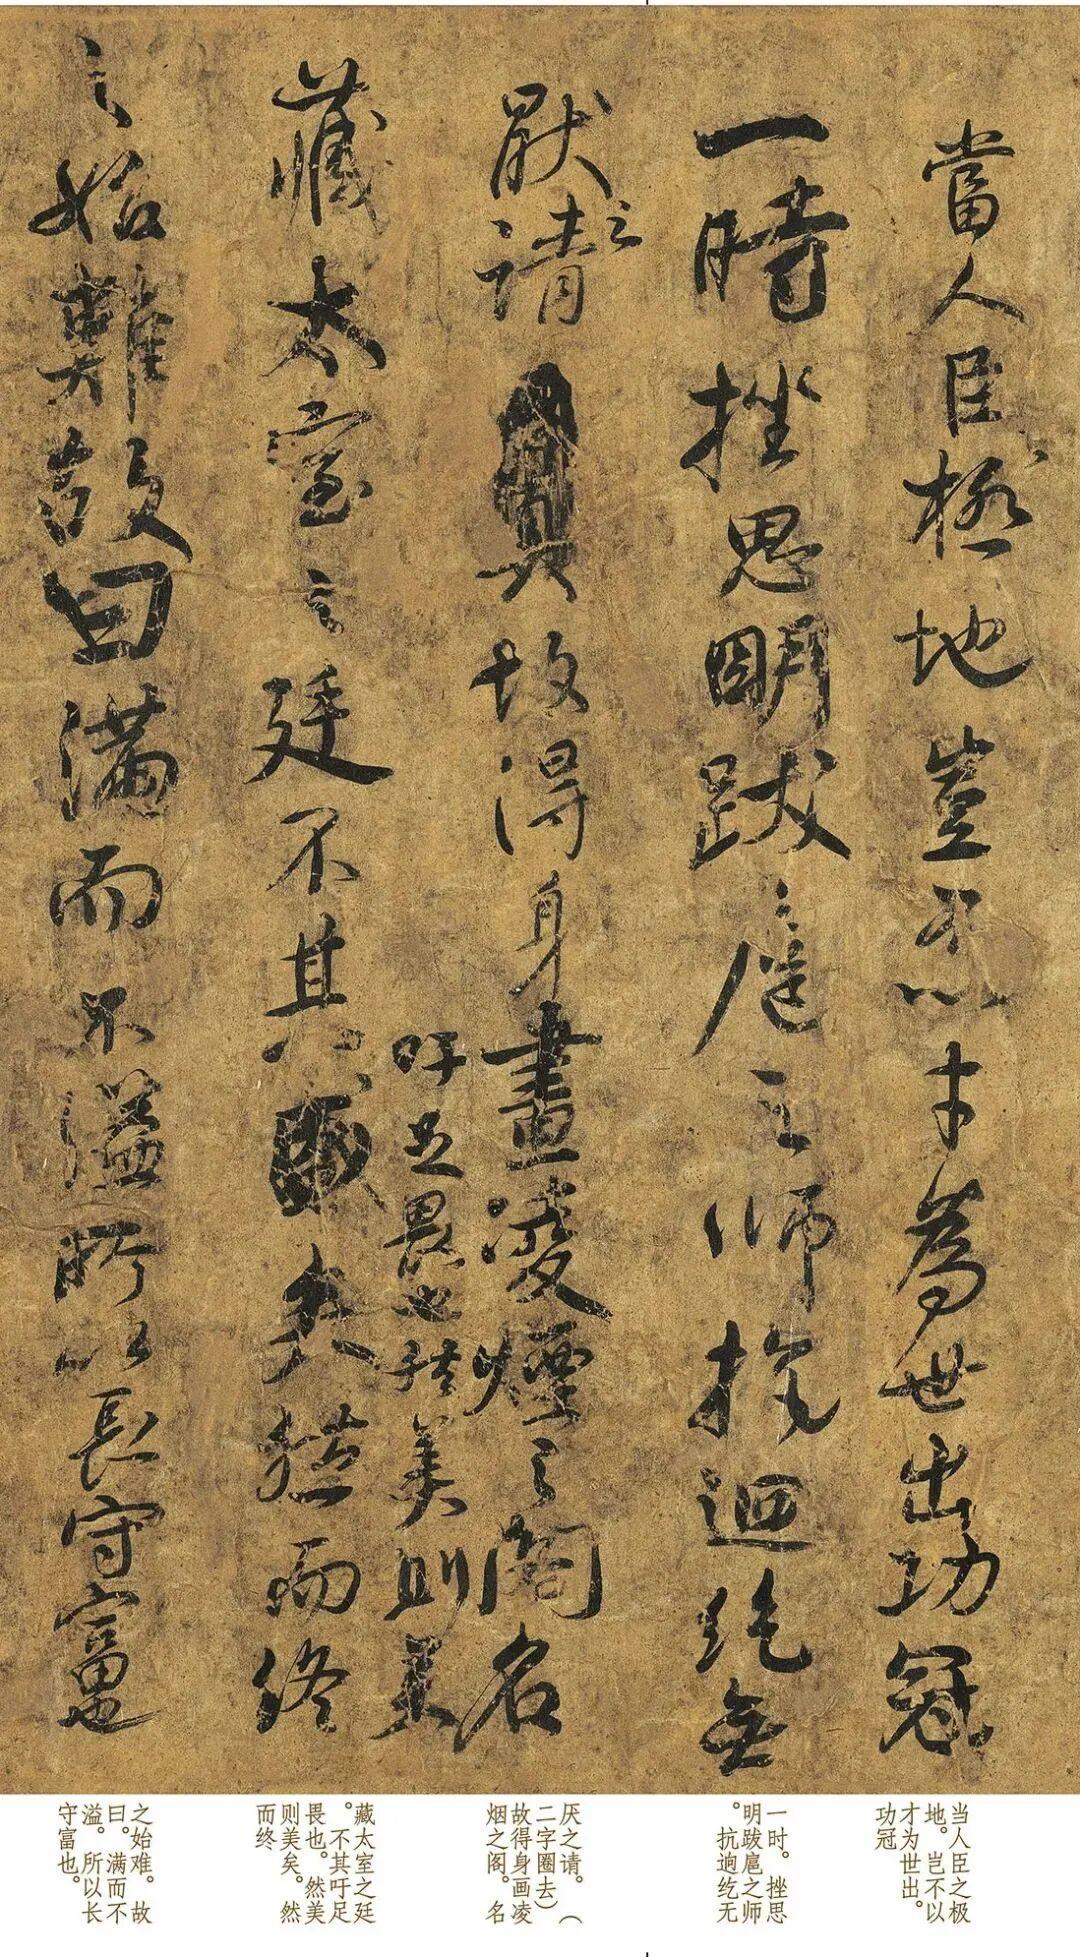 當人臣之極地豈不以才為世出功冠
一時挫思明跋扈之師抗迴紇無
厭之請故得身畫凌煙之閣名
吁足畏也然美則美
藏太室之廷不其矣然而終
之始難故曰滿而不溢所以長守富也
当人臣之极
地。岂不以
才为世出。
功冠
一时。挫思
明跋扈之师
。抗逈纥无
厌之请。（
二字圈去）
故得身画凌
烟之阁。名
藏太室之廷
。不其吁足
畏也。然美
则美矣。然
而终
之始难。故
曰。满而不
溢。所以长
守富也。